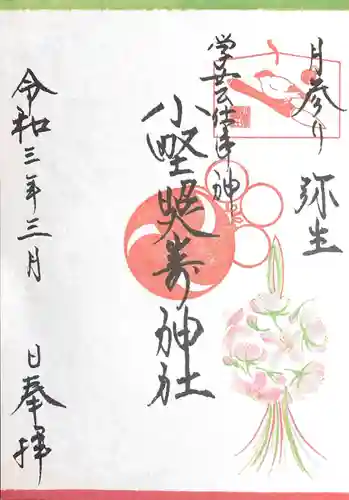 月参り
弥生
学芸仕事神
小野照崎神社
令和三年三月
日奉拝